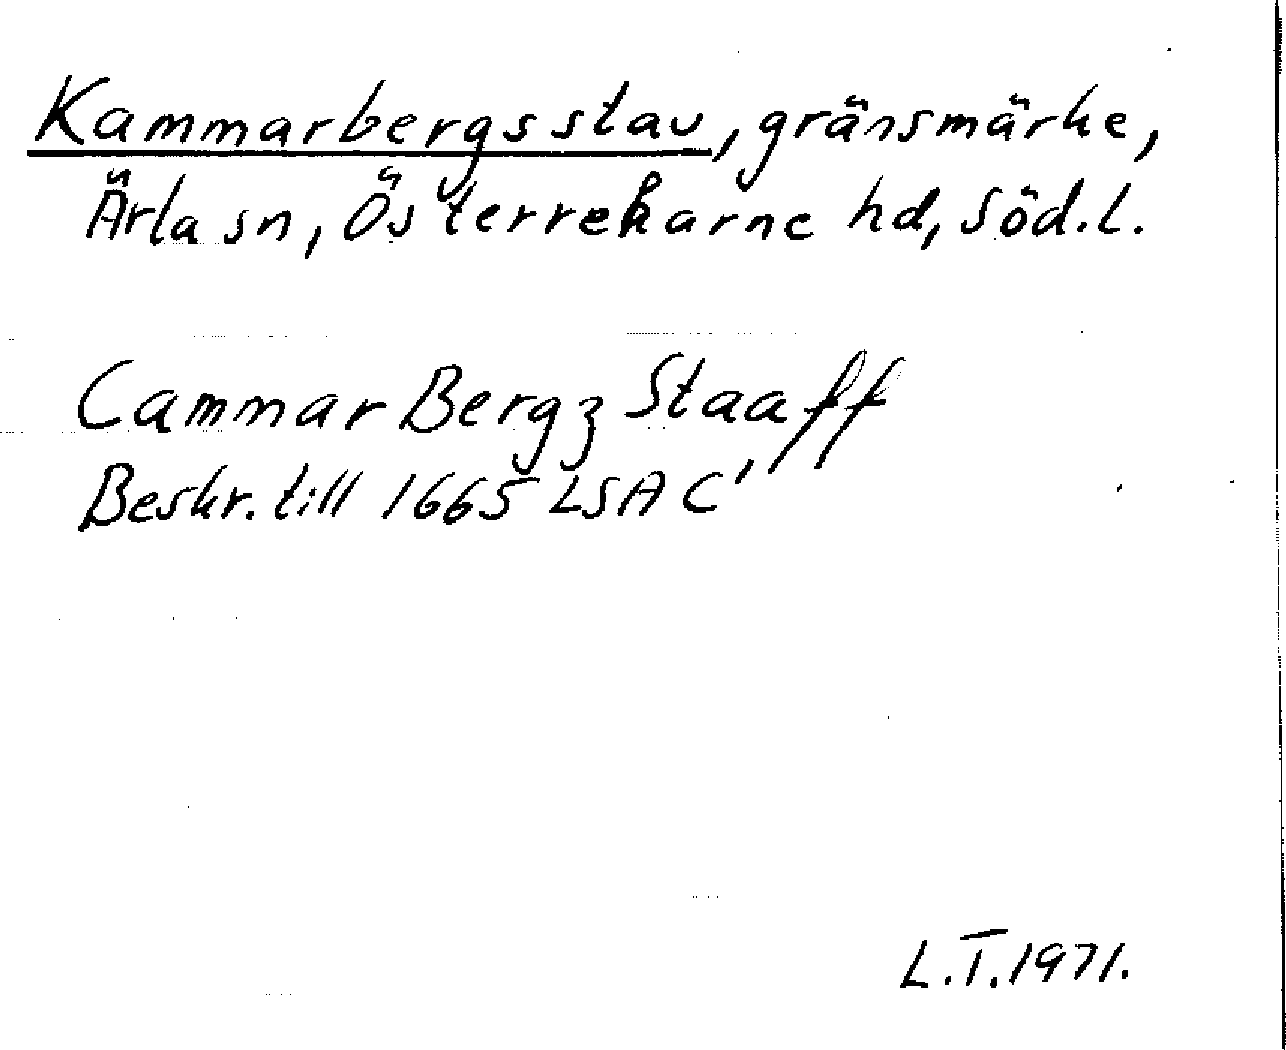 Kammarbergsstav, gränsmärke,
Ärla sn, Österrekarne hd, Söd.l.
Cammar Bergz Staaff
Beskr. till 1665 LSA C'
L.T.1971.